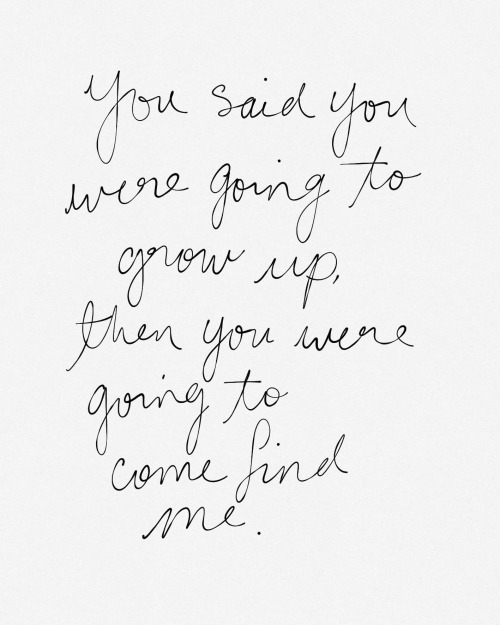 You said you
were going to
grow up,
then you were
going to
come find
me.